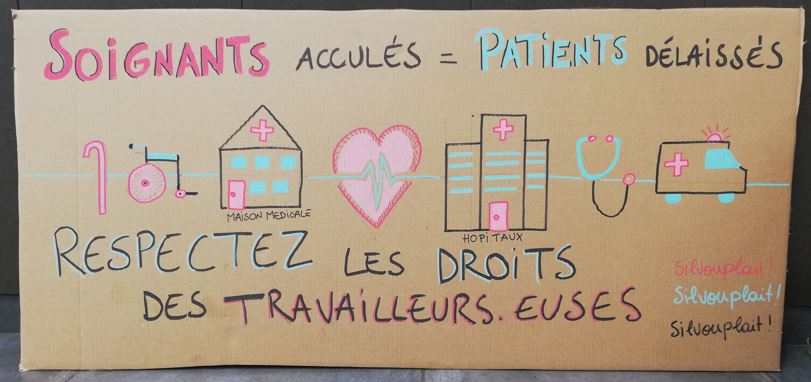 SOIGNANTS ACCULÉS = PATIENTS DÉLAISSÉS
MAISON MEDICALE
HOPITAUX
RESPECTEZ LES DROITS
DES TRAVAILLEURS.EUSES
Silvouplait!
Silvouplait!
Silvouplait!